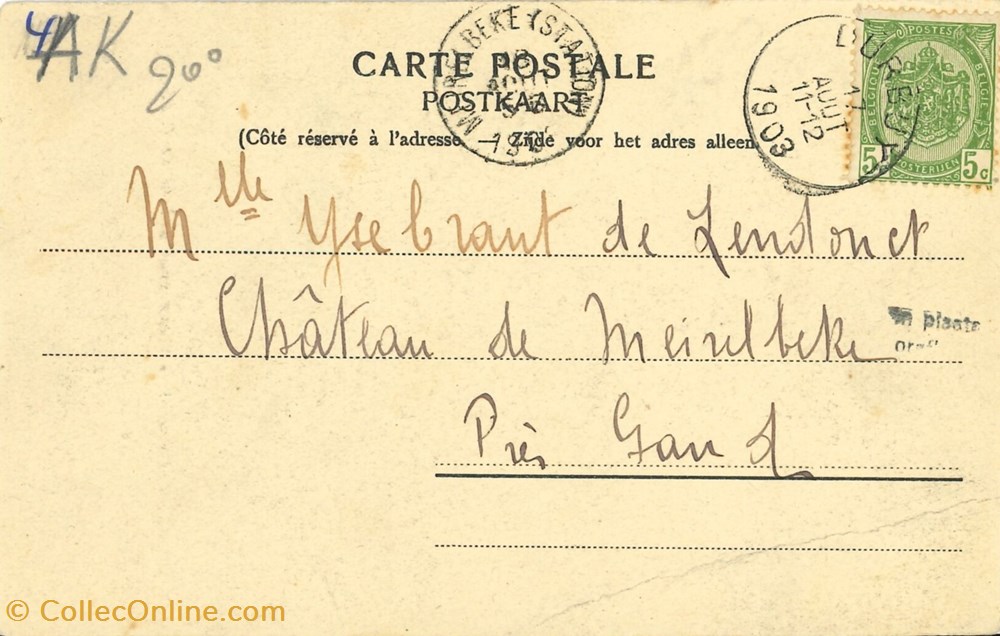 4AK
200
CARTE POSTALE
POSTKAART
(Côté réservé à l'adresse — Zijde voor het adres alleen
(STATION)
DURBUY
11
AOUT
11-12
1903
POSTES
BELGIQUE
BELGIË
POSTERIJEN
5c 5c
Mlle Ysebrant de Lendonck
Château de Meirelbeke
plaats
Près Gand
© CollecOnline.com